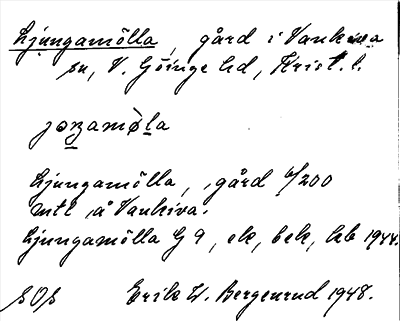 Ljungamölla, gård i Vankiva
sn, V. Göinge hd, Krist. l.
joŋamòla
Ljungamölla, gård 6/200
mtl å Vankiva.
Ljungamölla G 9, ek, bek, lkb 1944.
SOS Erik W. Bergenrud 1948.